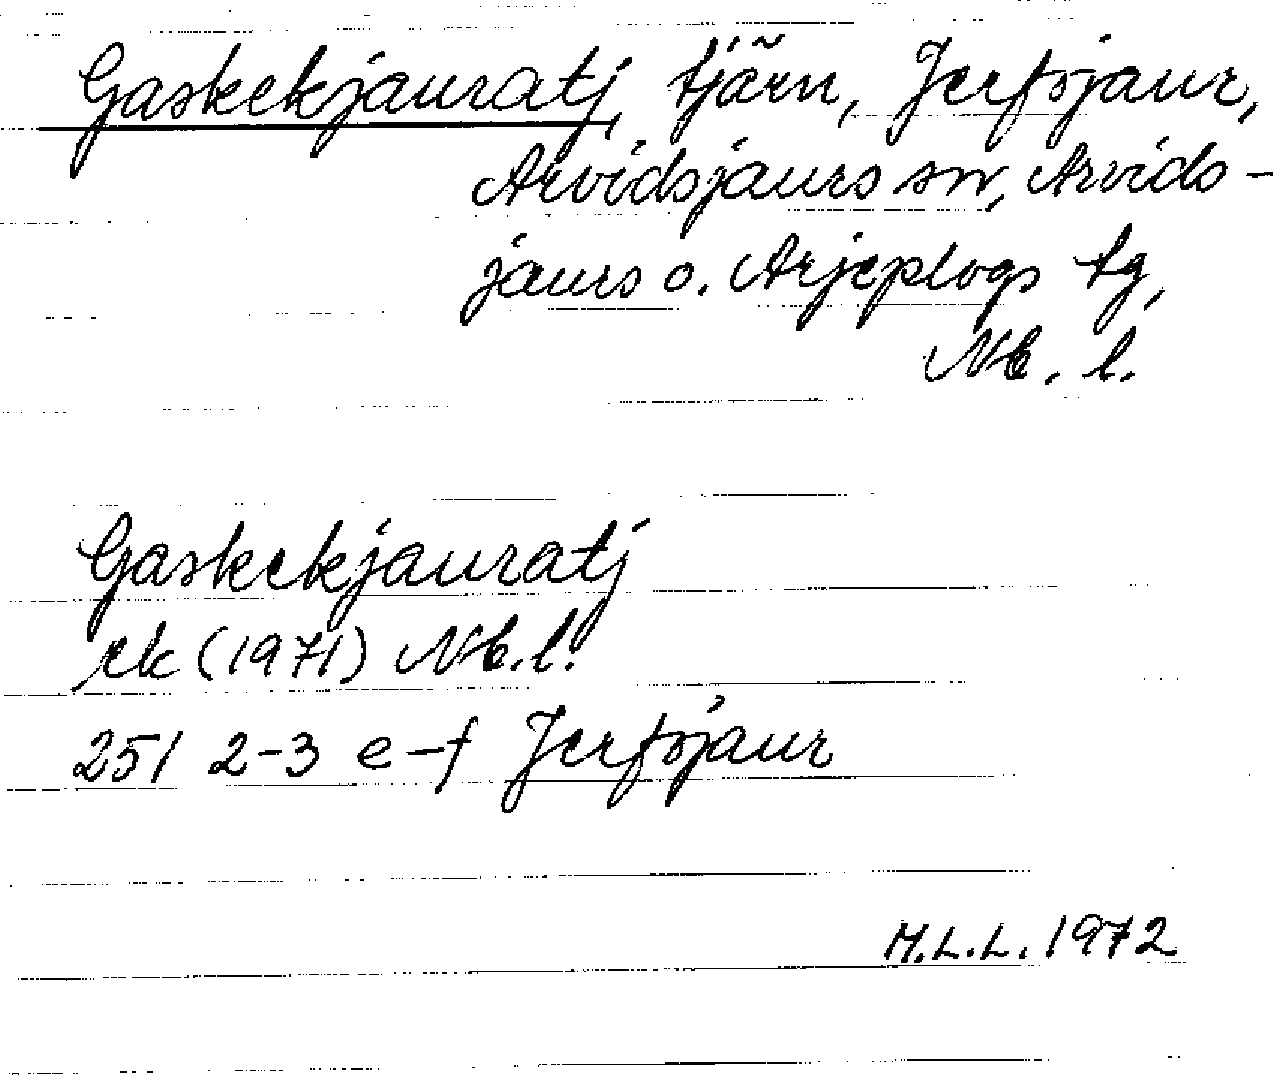 Gaskekjauratj, tjärn, Jerfsjaur,
Arvidsjaurs sn, Arvids-
jaurs o. Arjeplogs tg,
Nb. l.
Gaskekjauratj
ek (1971) Nb. l.
251 2-3 e-f Jerfsjaur
M.L.L. 1972